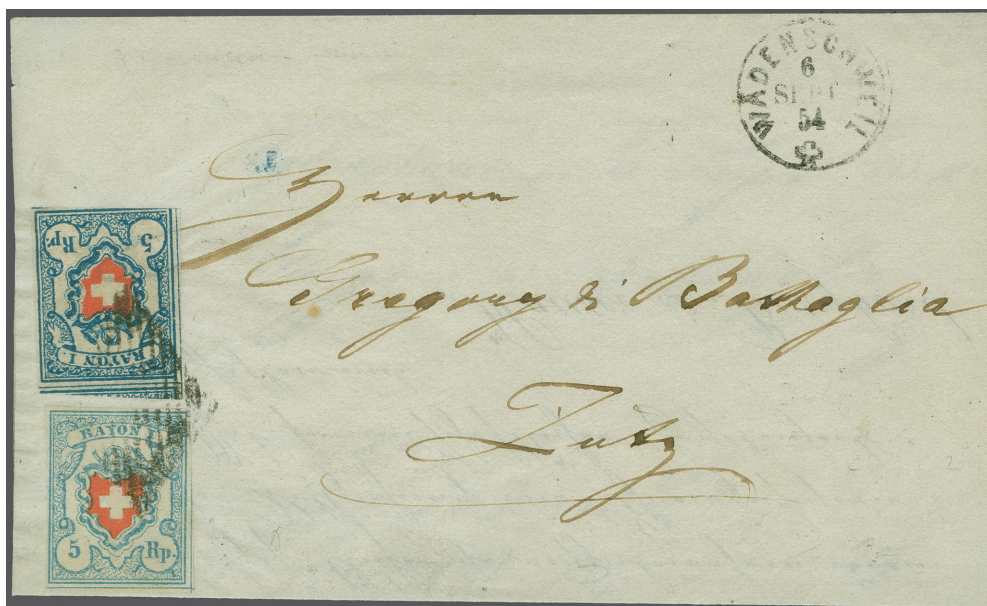 WÄDENSCHWEIL
6
SEPT
54
Herren
Gregory & Battaglia
Zutz
5 Rp.
RAYON I.
RAYON I.
5 Rp.